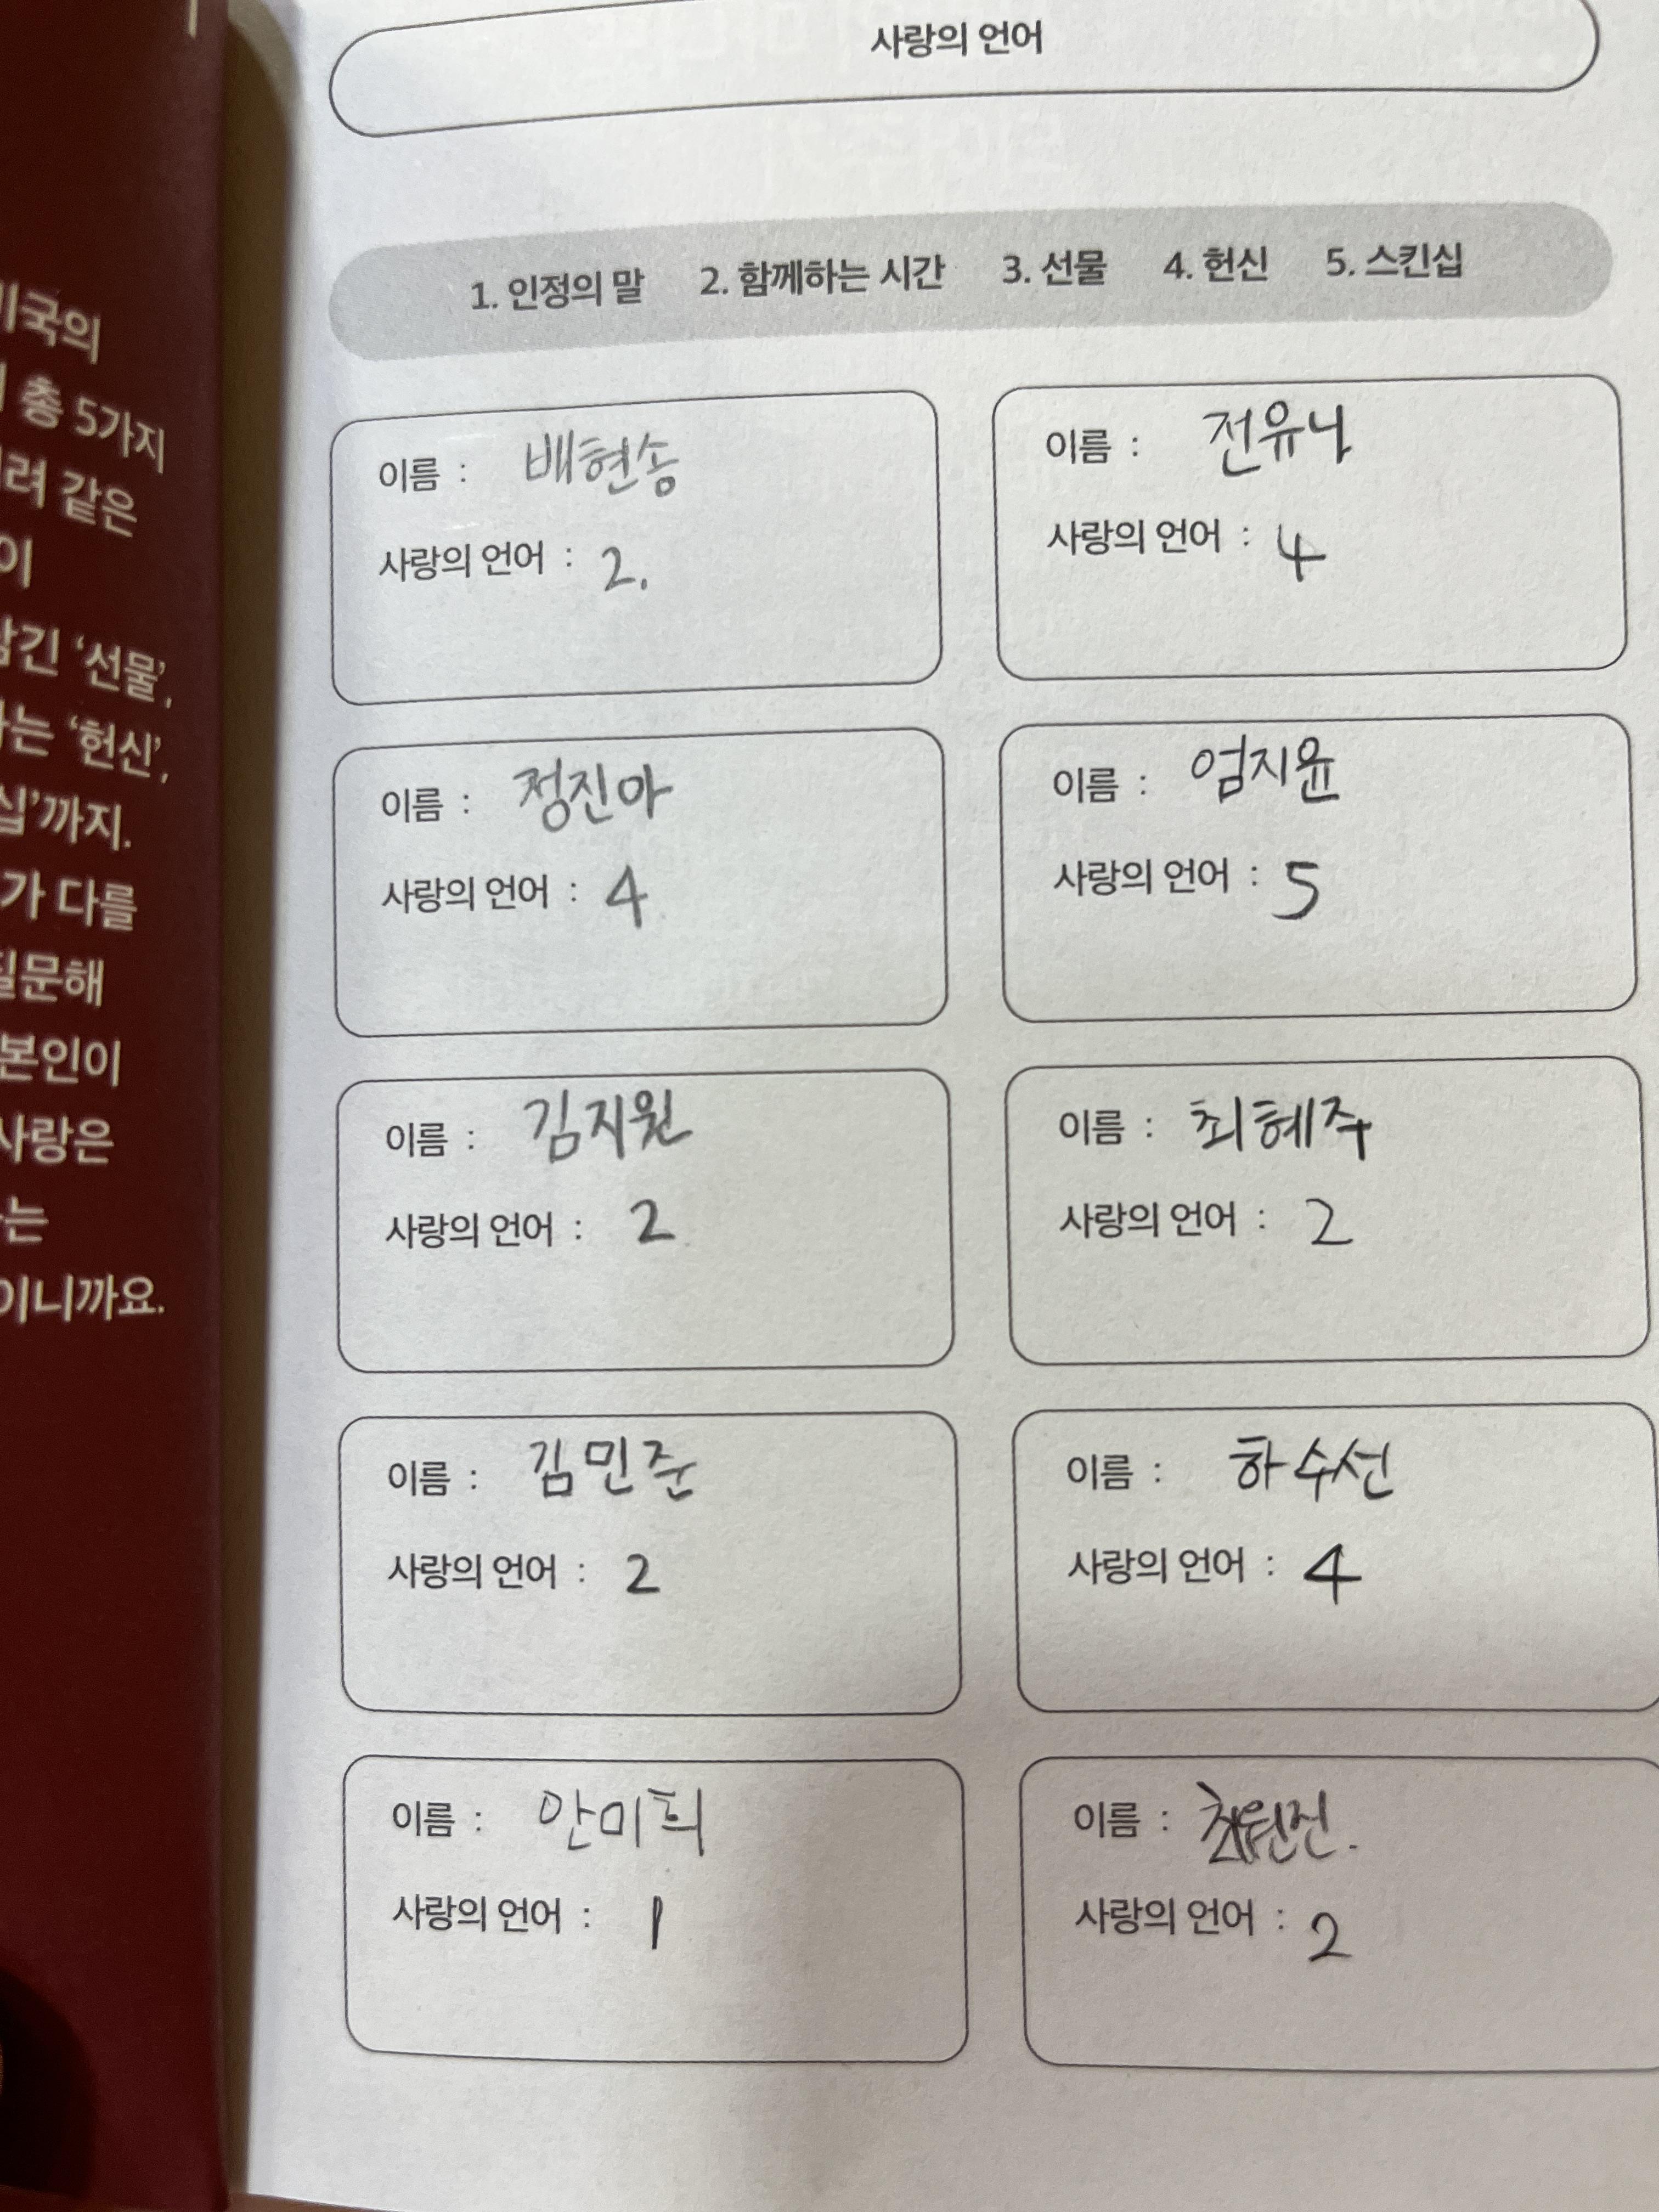 미국의
총 5가지
려 같은
이
담긴 ‘선물’,
하는 ‘헌신’,
십’까지.
가 다를
질문해
본인이
사랑은
는
이니까요.
사랑의 언어
1. 인정의 말 2. 함께하는 시간 3. 선물 4. 헌신 5. 스킨십
이름 : 배현송
사랑의 언어 : 2.
이름 : 전유나
사랑의 언어 : 4
이름 : 정진아
사랑의 언어 : 4
이름 : 엄지윤
사랑의 언어 : 5
이름 : 김지원
사랑의 언어 : 2
이름 : 최혜주
사랑의 언어 : 2
이름 : 김민준
사랑의 언어 : 2
이름 : 하수선
사랑의 언어 : 4
이름 : 안미희
사랑의 언어 : 1
이름 :
사랑의 언어 : 2